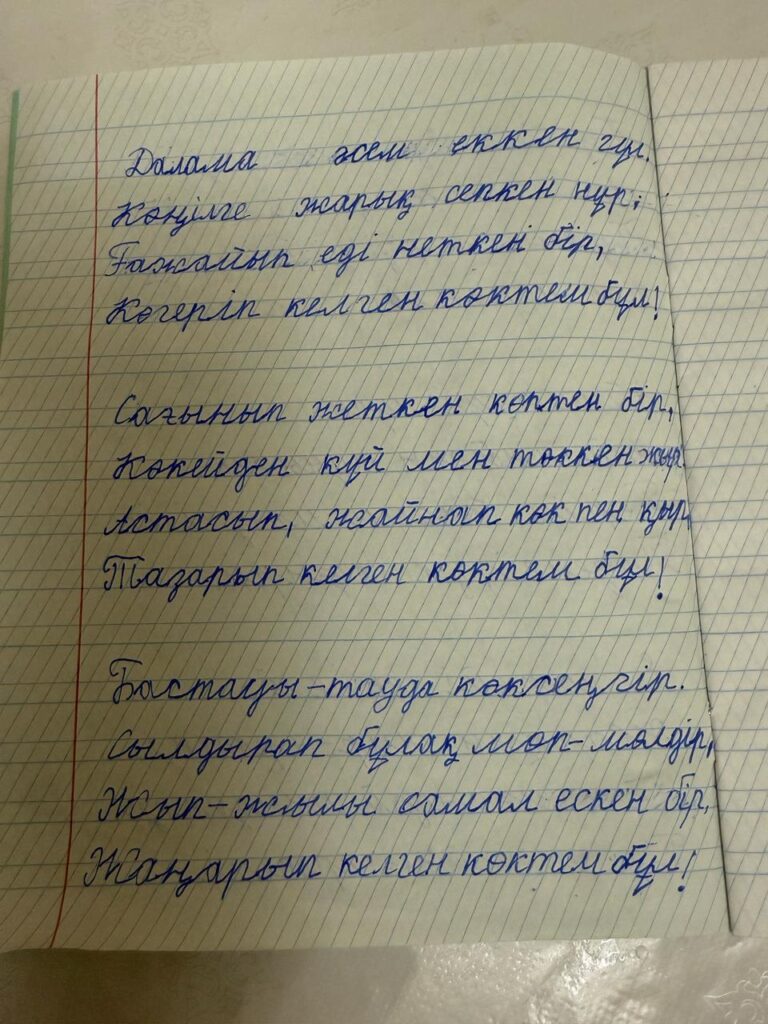 Далама жем еккен гүл.
Көңілге жарық сепкен нұр;
Ғажайып еді неткен бір,
Көгеріп келген көктем бұл!
Сағынып жеткен көптен бір,
Көкейден күй мен төккен жыр.
Астасып, жайнап көк пен қыр,
Тазарып келген көктем бұл!
Бастауы-тауда көксеңгір.
Сылдырап бұлақ мөп-мөлдір,
Жып-жылы самал ескен бір,
Жаңарып келген көктем бұл!